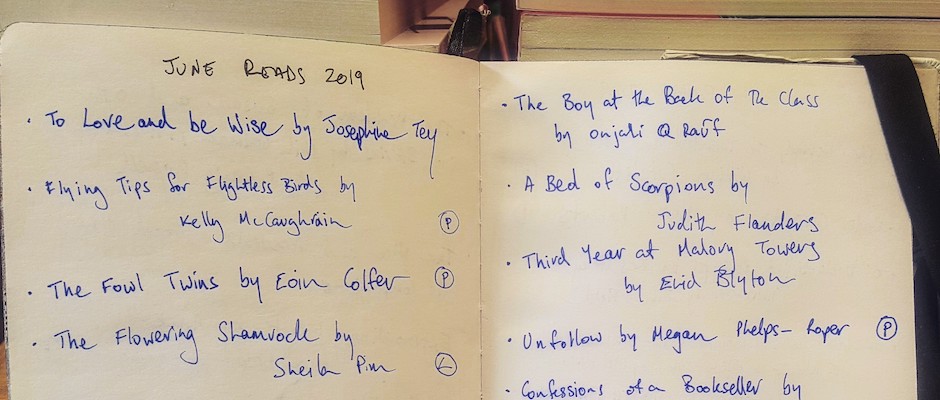 JUNE READS 2019
· To Love and be Wise by Josephine Tey
· Flying Tips for Flightless Birds by
Kelly McCaughrain Ⓟ
· The Fowl Twins by Eoin Colfer Ⓟ
· The Flowering Shamrock by
Sheila Pim Ⓛ
· The Boy at the Back of The Class
by Onjali Q Raúf
· A Bed of Scorpions by
Judith Flanders
· Third Year at Malory Towers
by Enid Blyton
· Unfollow by Megan Phelps-Roper Ⓟ
· Confessions of a Bookseller by